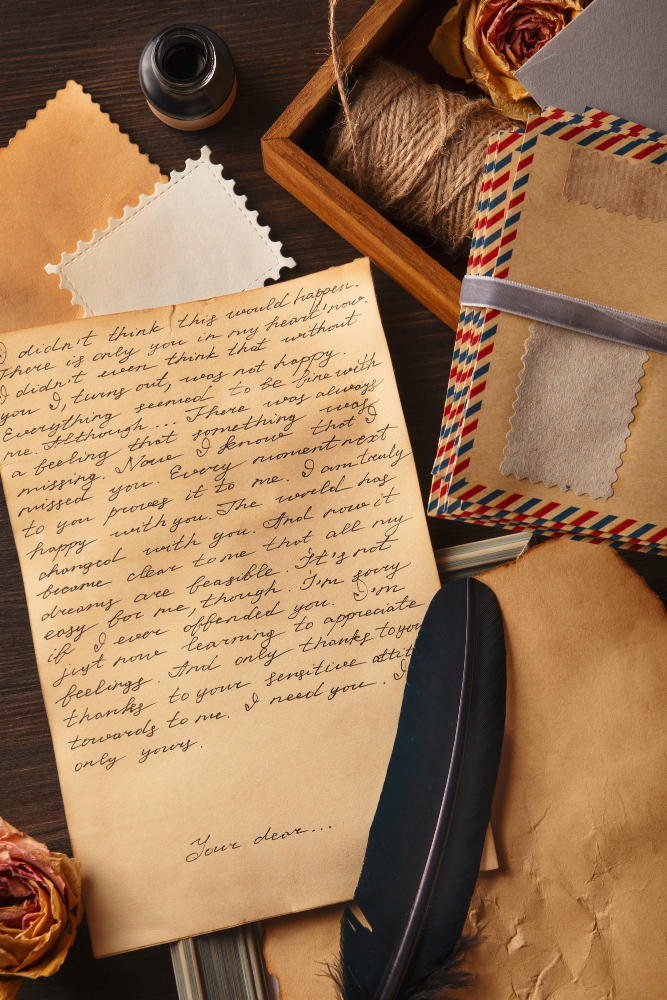 I didn't think this would happen.
There is only you in my heart now.
I didn't even think that without
you I, turns out, was not happy.
Everything seemed to be fine with
me. Although... There was always
a feeling that something was
missing. Now I know that I
missed you. Every moment next
to you proves it to me. I am truly
happy with you. The world has
changed with you. And now it
became clear to me that all my
dreams are feasible. It's not
easy for me, though. I'm sorry
if I ever offended you. I'm
just now learning to appreciate
feelings. And only thanks to you
thanks to your sensitive
towards to me. I need you. I
only yours.
Your dear...